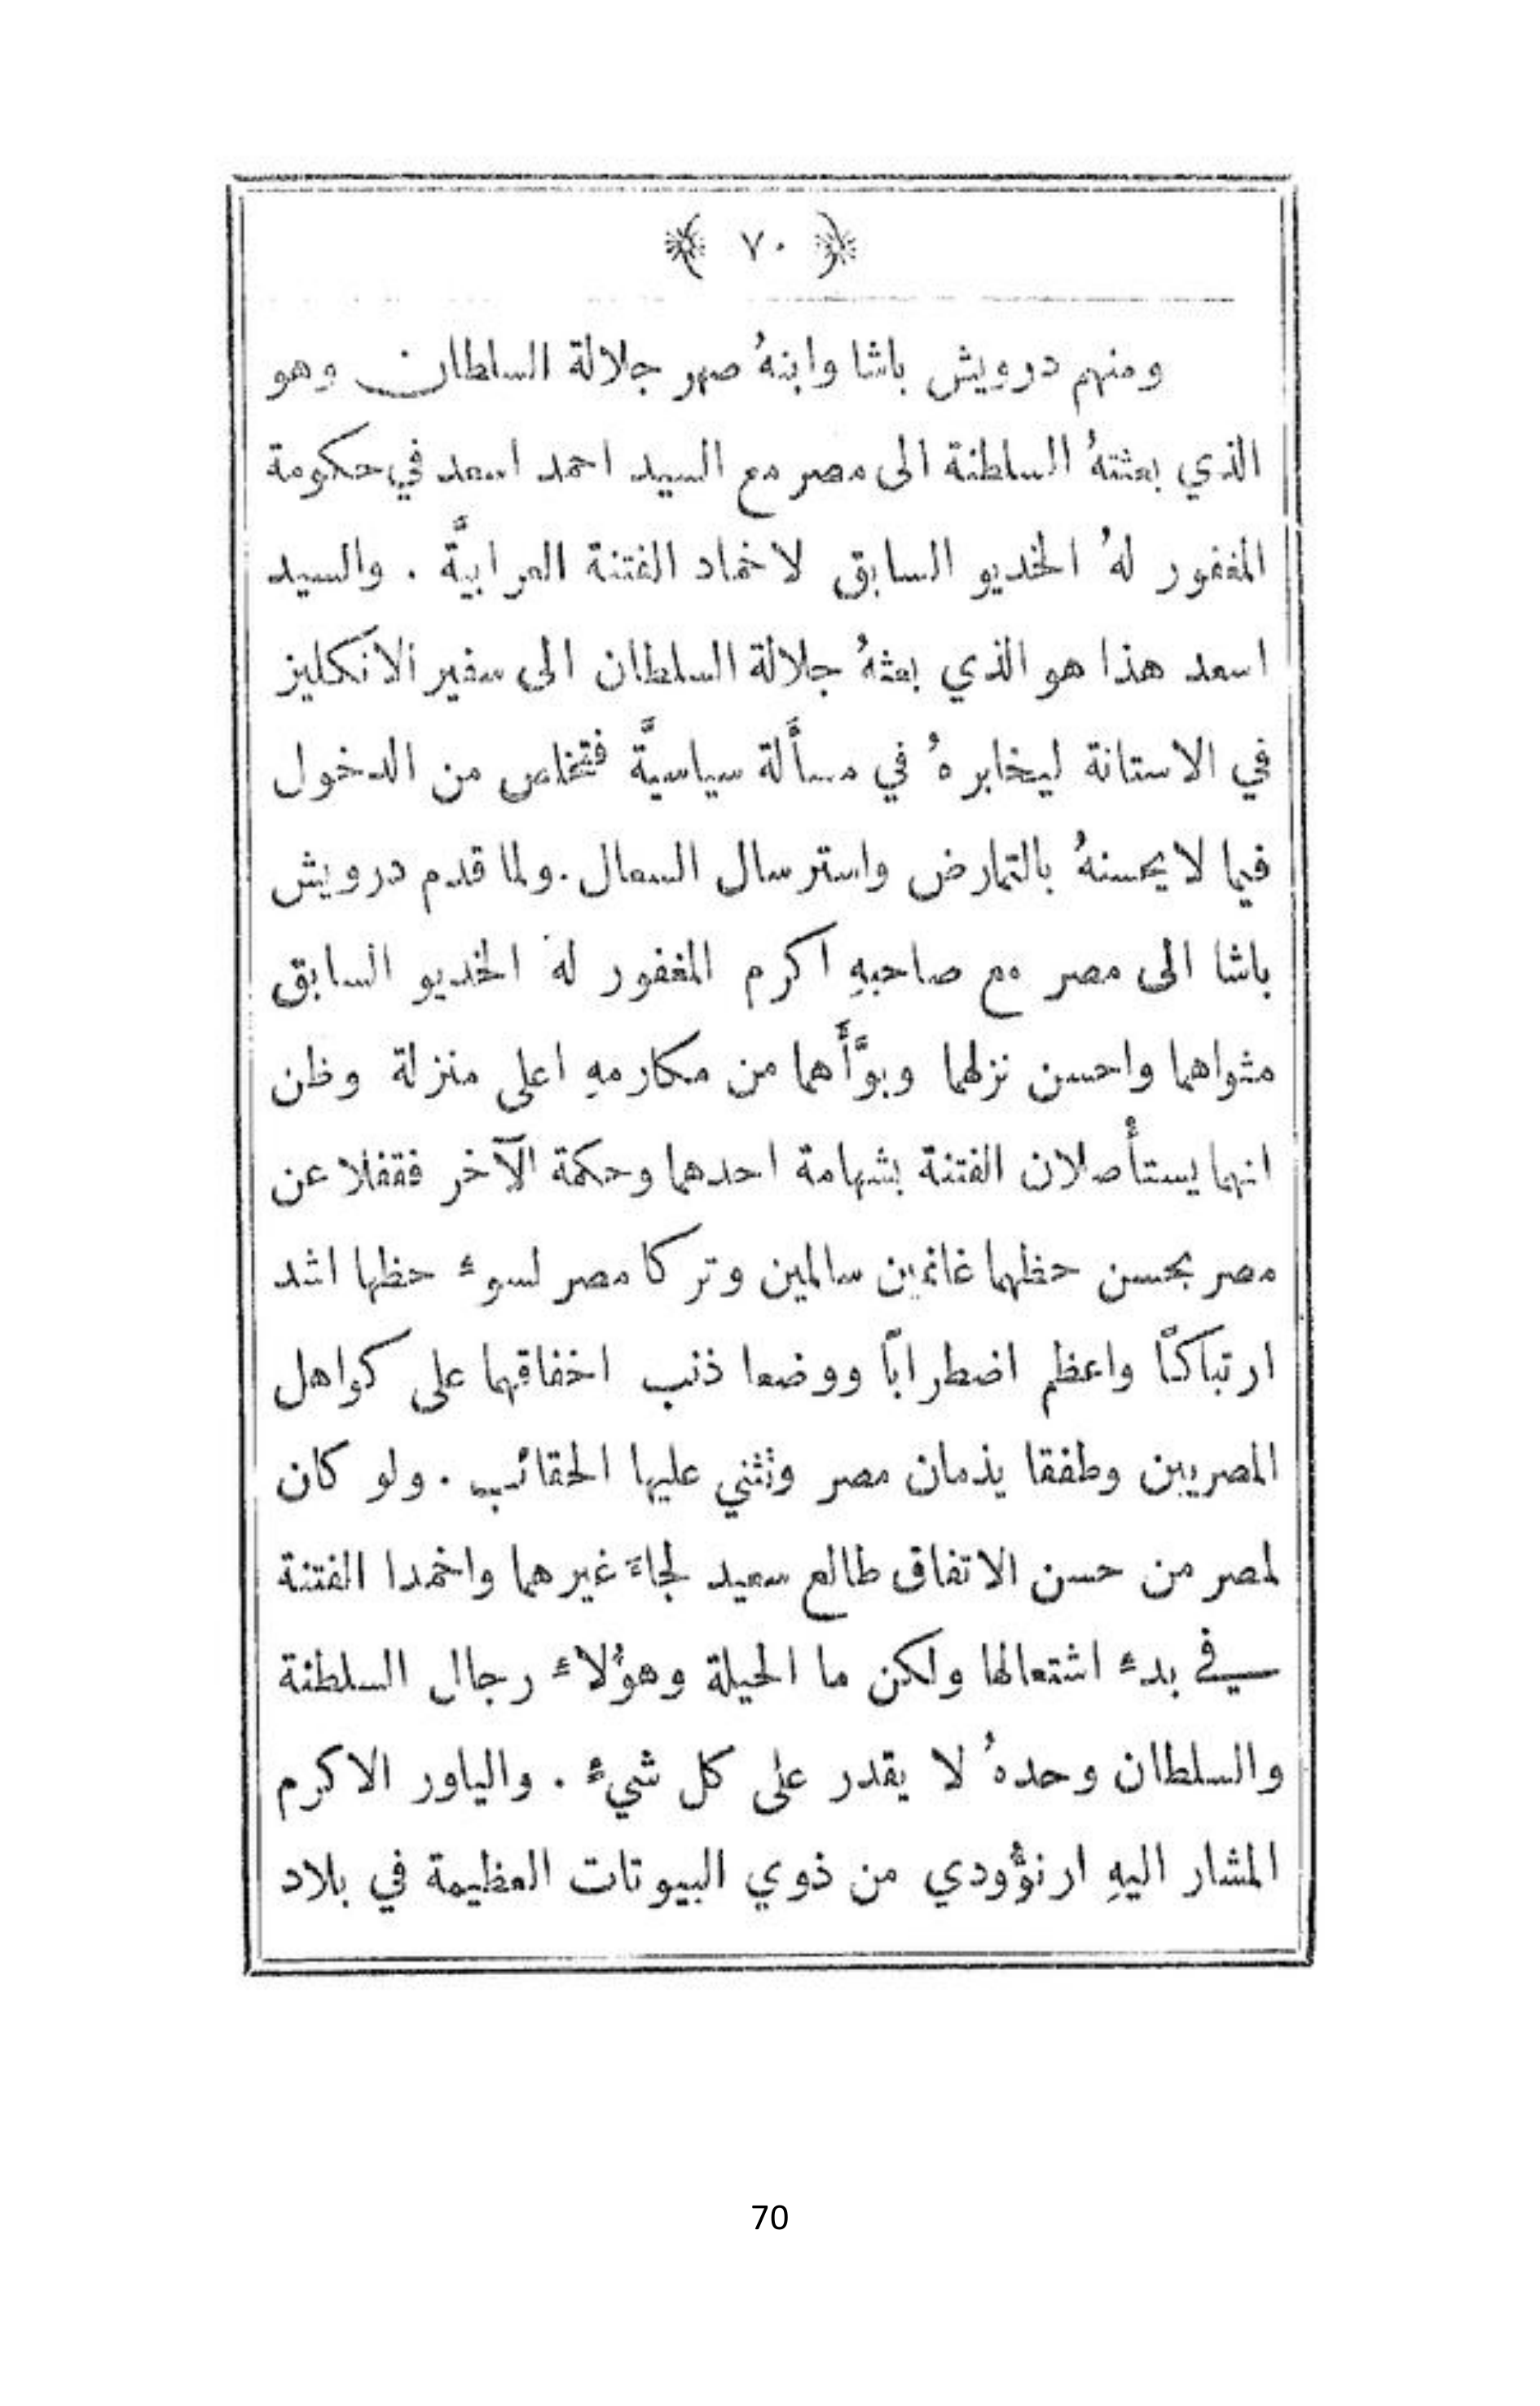 ﴿ ٧٠ ﴾
ومنهم درويش باشا وابنهُ صهر جلالة السلطان وهو
الذي بعثتهُ السلطنة الى مصر مع السيد احمد اسعد في حكومة
المغفور لهُ الخديو السابق لاخماد الفتنة العرابيَّة . والسيد
اسعد هذا هو الذي بعثهُ جلالة السلطان الى سفير الانكليز
في الاستانة ليخابرهُ في مسأَلة سياسيَّة فتخلص من الدخول
فيما لا يحسنهُ بالتمارض واسترسال السعال . ولما قدم درويش
باشا الى مصر مع صاحبهِ اكرم المغفور لهُ الخديو السابق
مثواهما واحسن نزلهما وبوَّأَهما من مكارمهِ اعلى منزلة وظن
انهما يستأْصلان الفتنة بشهامة احدهما وحكمة الآخر فقفلا عن
مصر بحسن حظهما غانمين سالمين وتركا مصر لسوء حظها اشد
ارتباكًا واعظم اضطرابًا ووضعا ذنب اخفاقهما على كواهل
المصريين وطفقا يذمان مصر وتثني عليها الحقائب . ولو كان
لمصر من حسن الاتفاق طالع سعيد لجاءَ غيرهما واخمدا الفتنة
في بدء اشتعالها ولكن ما الحيلة وهؤُلاء رجال السلطنة
والسلطان وحدهُ لا يقدر على كل شيءٍ . والياور الاكرم
المشار اليهِ ارنؤُودي من ذوي البيوتات العظيمة في بلاد
70